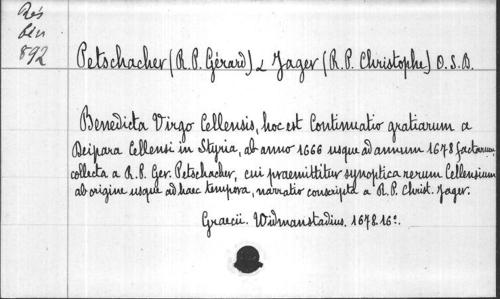 Rés
Lux
892
Petschacher (R.P. Gérard) & Jager (R.P. Christophe) O.S.B.
Benedicta Virgo Cellensis, hoc est Continuatio gratiarum a
Deipara Cellensi in Styria, ab anno 1666 usque ad annum 1678 factarum
collecta a R.P. Ger. Petschacher, cui praemittitur synoptica rerum Cellensium
ab origine usque ad haec tempora, narratio conscripta a R.P. Christ. Jager.
Graecii. Widmanstadius. 1678. 16º.